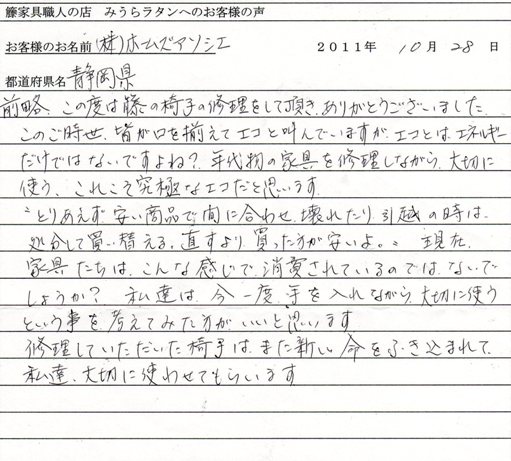 籐家具職人の店　みうらラタンへのお客様の声
お客様のお名前 (株)ホームズアソシエ　2011年 10月 28日
都道府県名 静岡県
前略、この度は籐の椅子の修理をして頂き、ありがとうございました
このご時世、皆が口を揃えてエコと叫んでいますが、エコとは、エネルギー
だけではないですよね？年代物の家具を修理しながら、大切に
使う、これこそ究極なエコだと思います
"とりあえず安い商品で間に合わせ、壊れたり、引越の時は、
処分して買い替える。直すより、買った方が安いよ。" 現在、
家具たちは、こんな感じで、消費されているのでは、ないで
しょうか？　私達は、今一度、手を入れながら、大切に使う
という事を考えてみた方がいいと思います
修理していただいた椅子は、また新しい命をふき込まれて、
私達、大切に使わせてもらいます